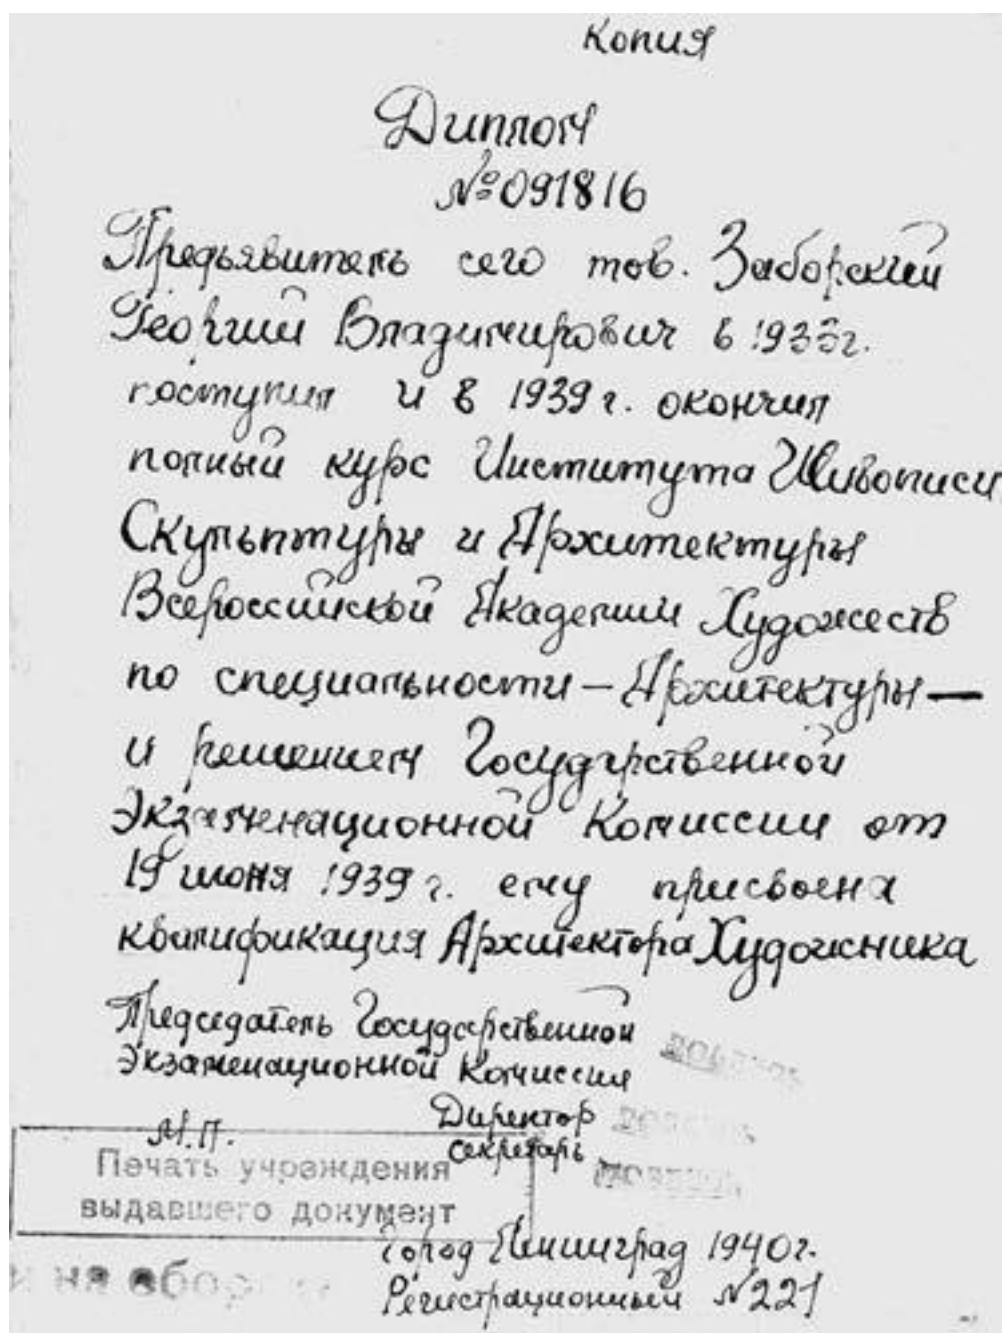 Копия
Диплом
№ 091816
Предъявитель сего тов. Заборский
Георгий Владимирович в 1933г.
поступил и в 1939 г. окончил
полный курс Института Живописи
Скульптуры и Архитектуры
Всероссийской Академии Художеств
по специальности – Архитектуры –
и решением Государственной
Экзаменационной Комиссии от
19 июня 1939 г. ему присвоена
квалификация Архитектора Художника
Председатель Государственной
Экзаменационной Комиссии
Директор
М.П. секретарь
Печать учреждения
выдавшего документ
Город Ленинград 1940г.
на
Регистрационный №221